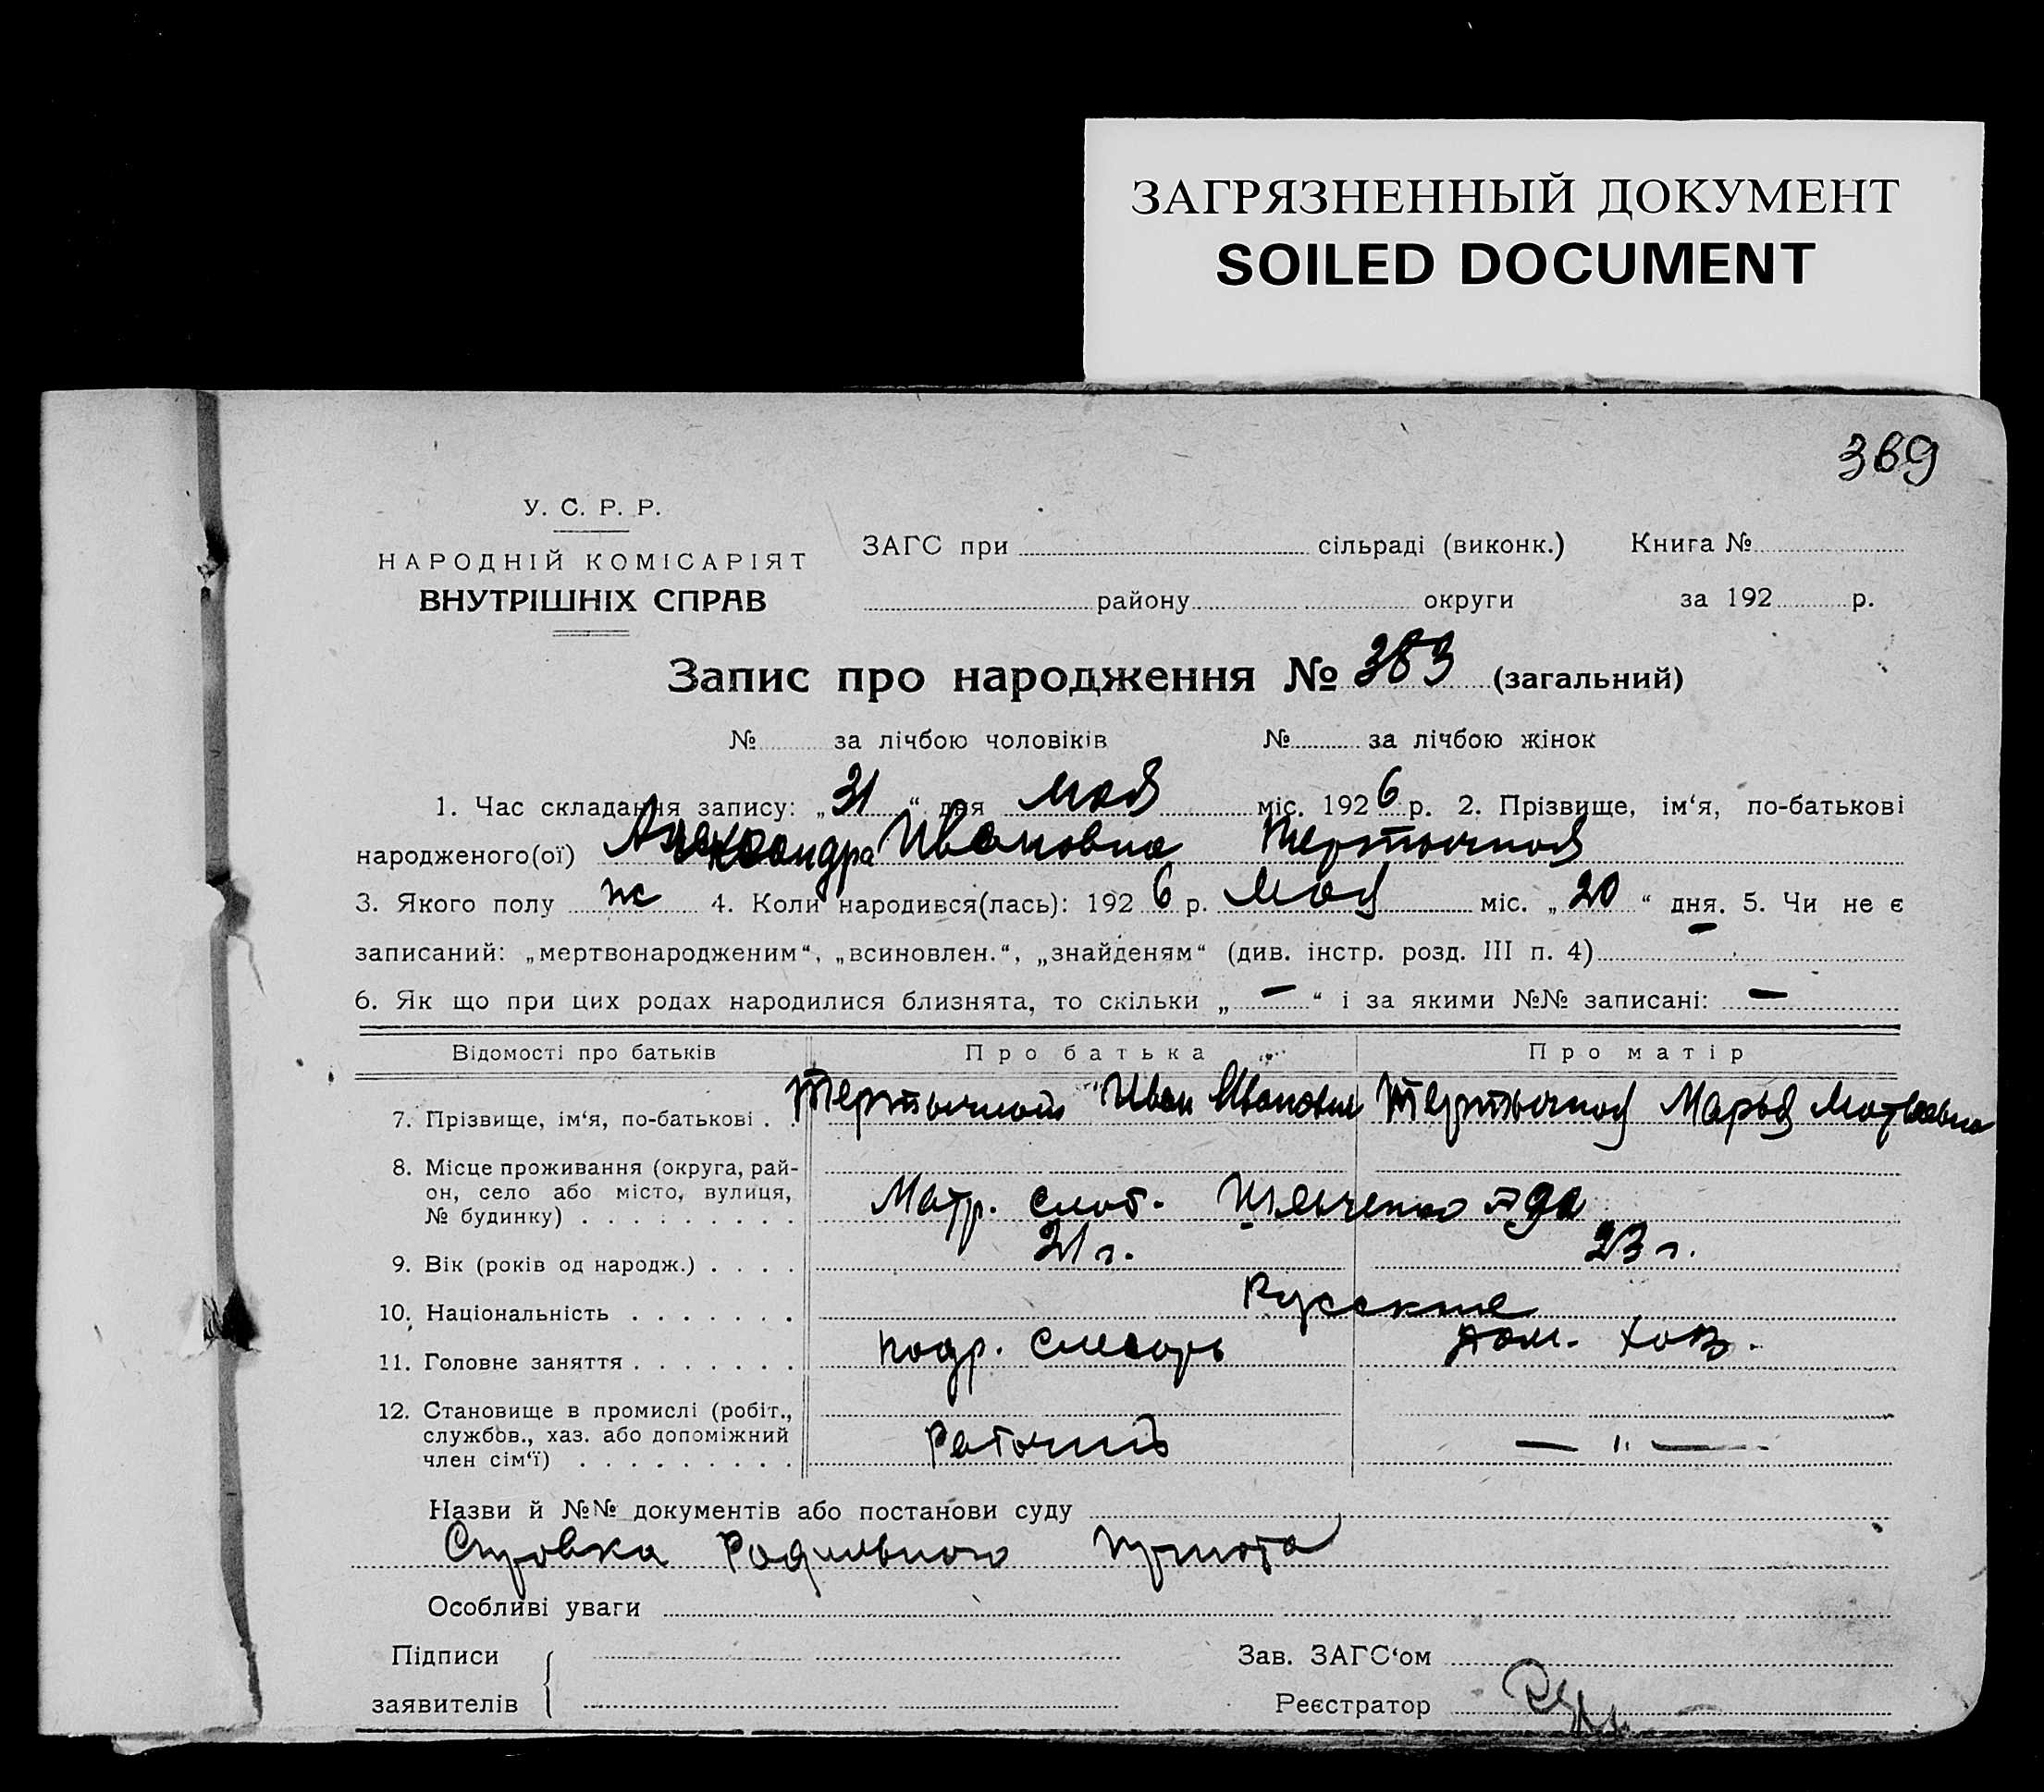 ЗАГРЯЗНЕННЫЙ ДОКУМЕНТ
SOILED DOCUMENT
369
У. С. Р. Р.
НАРОДНІЙ КОМІСАРІЯТ
ВНУТРІШНІХ СПРАВ
ЗАГС при сільраді (виконк.) Книга №
району округи за 192 р.
Запис про народження № 383 (загальний)
№ за лічбою чоловіків № за лічбою жінок
1. Час складання запису: „31“ дня мая міс. 1926 р. 2. Прізвище, ім‘я, по-батькові
народженого(ої) Александра Ивановна Тертычная
3. Якого полу ж 4. Коли народився(лась): 1926 р. мая міс. „20“ дня. 5. Чи не є
записаний: „мертвонародженим“, „всиновлен.“, „знайденям“ (див. інстр. розд. III п. 4) —
6. Як що при цих родах народилися близнята, то скільки „—“ і за якими №№ записані: —
Відомості про батьків Про батька Про матір
7. Прізвище, ім‘я, по-батькові . . Тертычный Иван Иванович Тертычная Марья Матвеевна
8. Місце проживання (округа, рай-
он, село або місто, вулиця,
№ будинку) . . . . . . . . . Матр. слоб.
9. Вік (років од народж.) . . . . 21 г. 23 г.
10. Національність . . . . . . . Русские
11. Головне заняття . . . . . . . подр. слесарь дом. хоз.
12. Становище в промислі (робіт.,
службов., хаз. або допоміжний
член сім‘ї) . . . . . . . . . Рабочий — " —
Назви й №№ документів або постанови суду
Справка Родильного приюта
Особливі уваги
Підписи
заявителів
Зав. ЗАГС‘ом
Реєстратор